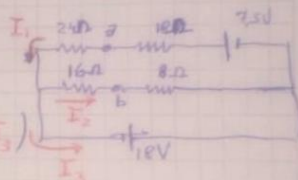 I₁ 24Ω a 18Ω 7,5V
16Ω 8Ω
I₂ b
18V
I₃